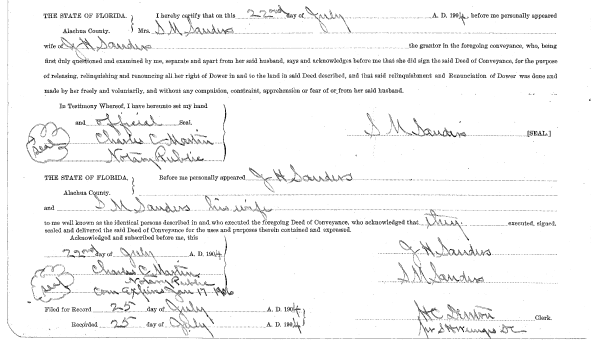 THE STATE OF FLORIDA. } I hereby certify that on this 22nd day of July A. D. 1904, before me personally appeared
Alachua County. Mrs. S M Sanders
wife of J H Sanders the grantor in the foregoing conveyance, who, being
first duly questioned and examined by me, separate and apart from her said husband, says and acknowledges before me that she did sign the said Deed of Conveyance, for the purpose
of releasing, relinquishing and renouncing all her right of Dower in and to the land in said Deed described, and that said relinquishment and Renunciation of Dower was done and
made by her freely and voluntarily, and without any compulsion, constraint, apprehension or fear of or from her said husband.
In Testimony Whereof, I have hereunto set my hand
and official Seal.
Seal Charles C Martin S M Sanders [SEAL.]
Notary Public
THE STATE OF FLORIDA. } Before me personally appeared J H Sanders
Alachua County.
and S M Sanders his wife
to me well known as the identical persons described in and who executed the foregoing Deed of Conveyance, who acknowledged that they executed, signed.
sealed and delivered the said Deed of Conveyance for the uses and purposes therein contained and expressed.
Acknowledged and subscribed before me, this
22nd day of July A. D. 1904 J H Sanders
Charles C Martin S M Sanders
Seal Notary Public
Com Expires Jan 17 1906
Filed for Record 25 day of July A. D. 1904 H C Denton Clerk.
Recorded 25 day of July A. D. 1904 per S H Wienges DC